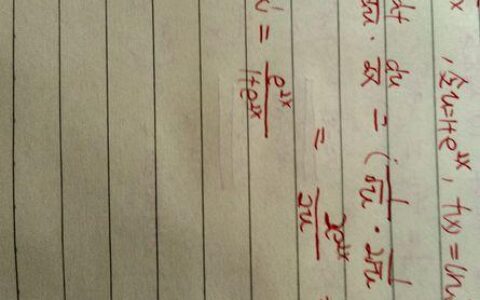 x, 令u=1+e^{2x}, f(x)=ln
\frac{du}{dx} = (\frac{1}{\sqrt{u}} · \frac{1}{2\sqrt{u}}
= \frac{2e^{2x}}{2u}
= \frac{e^{2x}}{1+e^{2x}}